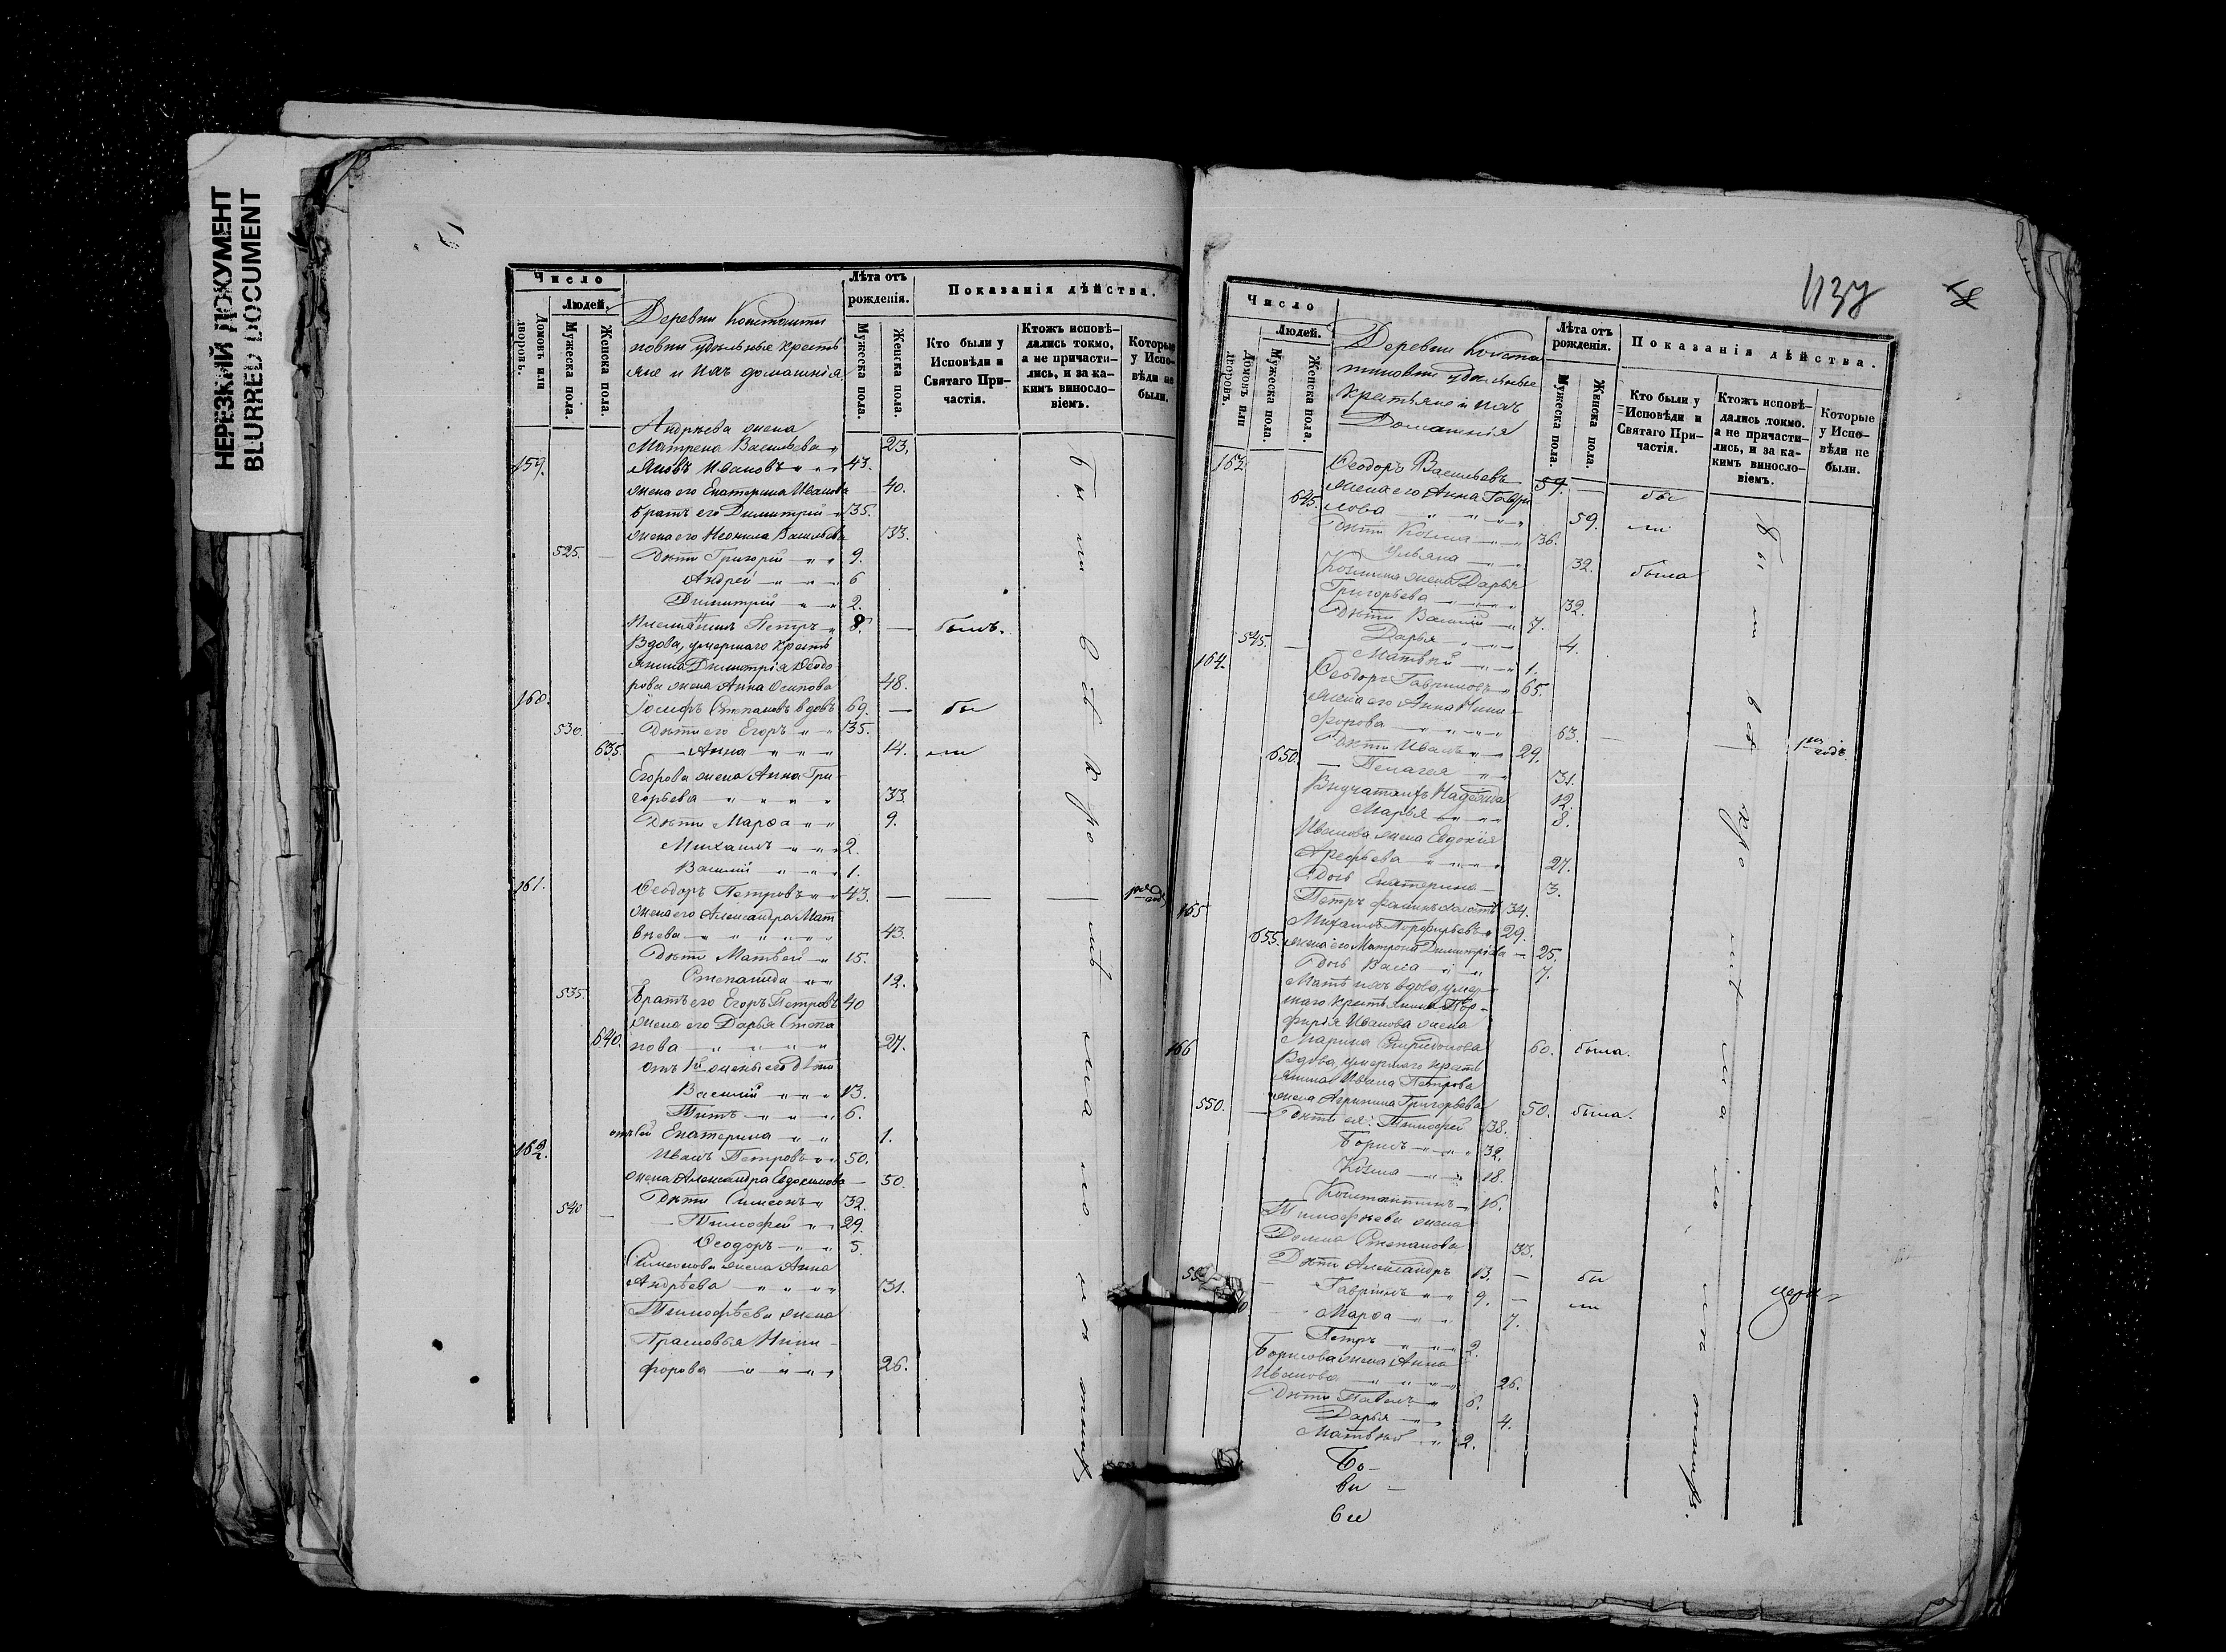 НЕРЕЗКИЙ ДОКУМЕНТ
BLURRED DOCUMENT
Число
Людей.
Домовъ или дворовъ.
Мужеска пола.
Женска пола.
Деревни Константи
новки удѣльные кресть
яне и ихъ домашнія.
Лѣта отъ рожденія.
Мужеска пола.
Женска пола.
Показанія дѣйства.
Кто были у Исповѣди и Святаго Причастія.
Ктожъ исповѣдались токмо, а не причастились, и за какимъ винословіемъ.
Которые у Исповѣди не были.
Андрѣева жена
Матрена Васильева 23.
159. Яковъ Ивановъ 43.
жена его Екатерина Иванова 40.
братъ его Димитрий 35.
жена его Неонила Васильева 33.
525. Дѣти Григорий 9.
Андрей 6
Димитрий 2.
Племянникъ Петръ 8. — былъ.
Вдова, умершаго кресть
янина Димитрія Ѳеодо
рова жена Анна Осипова 48.
160. Іосифъ Степановъ вдовъ 69. — бы
530. Дѣти его Егоръ 35.
635. Анна 14. ли
Егорова жена Анна Гри
горьева 33.
Дѣти Марѳа 9.
Михаилъ 2.
Василий 1.
161. Ѳеодоръ Петровъ 43. — — —
жена его Александра Мат
вѣева 43.
Дѣти Матвей 15.
Степанида 12.
535. Братъ его Егоръ Петровъ 40
жена его Дарья Степа
640. нова 27.
отъ 1й жены его дѣти
Василий 13.
Титъ 6.
Екатерина 1.
162. Иванъ Петровъ 50.
жена Александра Евдокимова 50.
Дѣти Симеонъ 32.
540 Тимофей 29.
Ѳеодоръ 5.
Симеонова жена Анна
Андрѣева 31.
Тимофѣева жена
Прасковья Ники
форова 26.
1137
58
Число
Людей.
Домовъ или дворовъ.
Мужеска пола.
Женска пола.
Деревни Конста
тиновки удѣльные
крестьяне и ихъ
Домашнія
Лѣта отъ рожденія.
Мужеска пола.
Женска пола.
Показанія дѣйства.
Кто были у Исповѣди и Святаго Причастія.
Ктожъ исповѣдались токмо. а не причастились, и за какимъ винословіемъ.
Которые у Исповѣди не были.
163. Ѳеодоръ Васильевъ 59. — бы
жена его Анна Гаври
645. лова 59. ли
Дѣти Козма 36.
Ульяна 32. была
Козмина жена Дарья
Григорьева 32.
Дѣти Василий 7.
Дарья 4.
545. Матвѣй 1.
164. Ѳеодоръ Гавриловъ 65.
жена его Анна Ники
форова 63.
Дѣти Иванъ 29.
650. Пелагея 31.
Внучатамъ Надежда 12.
Марья 8.
Иванова жена Евдокія
Арефьева 27.
Дочь Екатерина 3.
165 Петръ 34.
Михаилъ Порфирьевъ 29.
655. жена его Матрона Димитріева 25.
Дочь 7.
Мать ихъ вдова, умер
шаго крестьянина Пор-
фирія Иванова жена
Марина Спиридонова 60. была.
166 Вдова, умершаго кресть
янина Ивана Петрова
жена Агрипина Григорьева 50. была.
550. Дѣти ея: Тимофей 38.
Борисъ 32.
Козма 18.
Константинъ 16.
Тимофѣева жена
Домна Степанова 33.
Дѣти Александръ 13. — бы
Гаврiилъ 9. — ли
Марѳа 7.
Петръ 2.
Борисова жена Анна
Иванова 26.
Дѣти Павелъ 6.
Дарья 4.
Матвѣй 2.